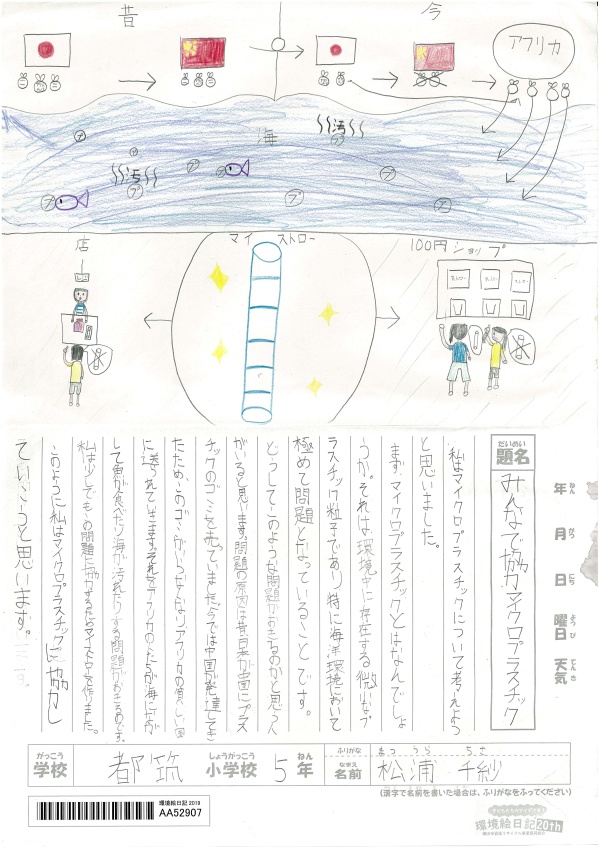 昔
今
アフリカ
汚
海
汚
プ
プ
プ
プ
プ
プ
プ
プ
店
マイストロー
100円ショップ
ストロー
ストロー
ストロー
だいめい
題名
みんなで協力マイクロプラスチック
年 ねん
月 がつ
日 にち
曜日 ようび
天気 てんき
私はマイクロプラスチックについて考えよう
と思いました。
まずマイクロプラスチックとはなんでしょ
うか。それは環境中に存在する微小なプ
ラスチック粒子であり、特に海洋環境において
極めて問題となっていることです。
どうしてこのような問題がおきるのかと思う人
がいると思います。問題の原因は昔、日本が中国にプラス
チックのゴミを売っていました。だが今では中国が発達してき
たため、このゴミがいらなくなり、アフリカの貧しい国
に送られていきます。それをアフリカの人たちが海にながし
して魚が食べたり海が汚れたりする問題がおきるのです。
私は少しでもこの問題に協力するためマイストローを作りました。
このように私はマイクロプラスチックに協力し
ていこうと思います。
がっこう
学校
都筑
しょうがっこう
小学校
5
ねん
年
ふりがな
まつ うら ちさ
なまえ
名前
松浦 千紗
(漢字で名前を書いた場合は、ふりがなをふってください)
環境絵日記 2019
AA52907
環境絵日記 20th